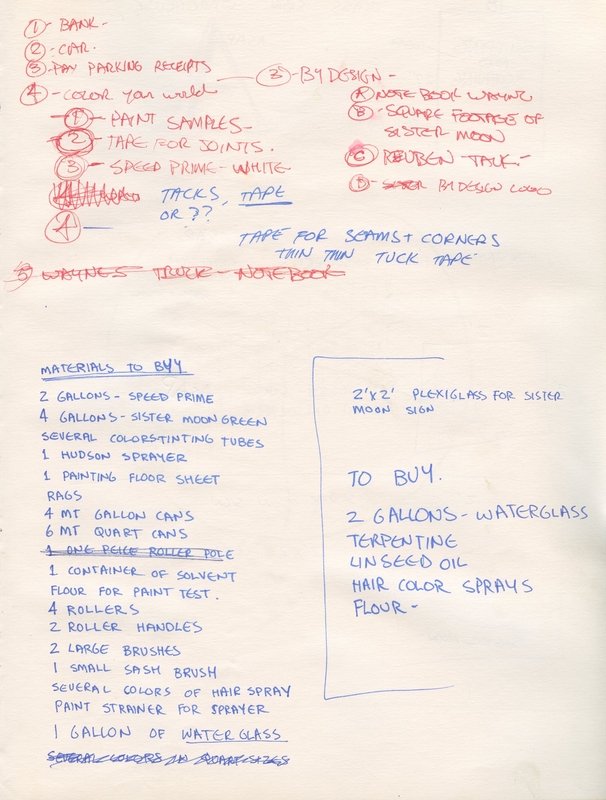 ① - BANK -
② - CAR.
③ - PAY PARKING RECEIPTS
④ - COLOR YOUR WORLD
① - PAINT SAMPLES -
② - TAPE FOR JOINTS.
③ - SPEED PRIME - WHITE.
TACKS, TAPE
OR ??
④ -
③ - BY DESIGN -
Ⓐ NOTE BOOK WAYNE
Ⓑ - SQUARE FOOTAGE OF
SISTER MOON
Ⓒ REUBEN - TALK. -
Ⓓ - BY DESIGN LOGO
TAPE FOR SEAMS + CORNERS
THIN THIN TUCK TAPE
⑤ - WAYNES TRUCK - NOTEBOOK
MATERIALS TO BUY
2 GALLONS - SPEED PRIME
4 GALLONS - SISTER MOON GREEN
SEVERAL COLORSTINTING TUBES
1 HUDSON SPRAYER
1 PAINTING FLOOR SHEET
RAGS
4 MT GALLON CANS
6 MT QUART CANS
1 ONE PEICE ROLLER POLE
1 CONTAINER OF SOLVENT
FLOUR FOR PAINT TEST.
4 ROLLERS
2 ROLLER HANDLES
2 LARGE BRUSHES
1 SMALL SASH BRUSH
SEVERAL COLORS OF HAIR SPRAY
PAINT STRAINER FOR SPRAYER
1 GALLON OF WATERGLASS
SEVERAL COLORS IN QUART SIZES
2'X2' PLEXIGLASS FOR SISTER
MOON SIGN
TO BUY.
2 GALLONS - WATERGLASS
TERPENTINE
LINSEED OIL
HAIR COLOR SPRAYS
FLOUR -